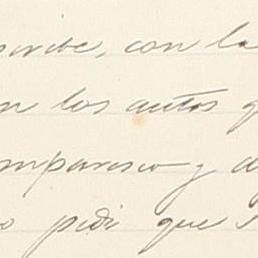 scribe, con la
en los autos q
mparesco y d
o pedi que s